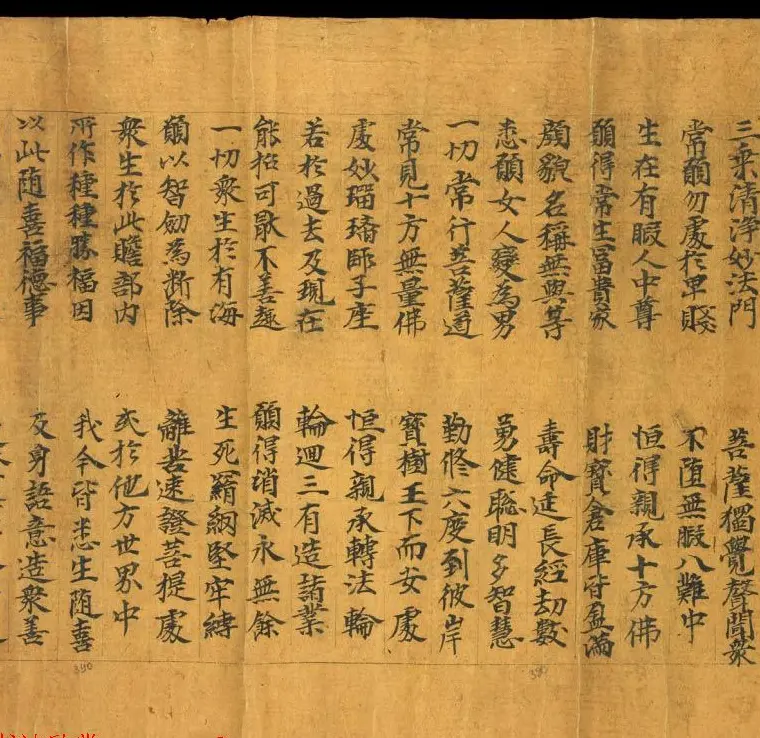 三乘清淨妙法門 菩薩獨覺聲聞衆
常願勿處於卑賤 不堕無暇八難中
生在有暇人中尊 恒得親承十方佛
願得常生富貴家 財寶倉庫皆盈滿
顔貌名稱無與等 壽命延長經劫數
悉願女人變為男 勇健聡明多智慧
一切常行菩薩道 勤修六度到彼岸
常見十方無量佛 寶樹王下而安處
處妙瑠璃師子座 恒得親承轉法輪
若於過去及現在 輪迴三有造諸業
能招可猒不善趣 願得消滅永無餘
一切衆生於有海 生死羂網堅牢縛
願以智劒為斷除 離苦速證菩提處
衆生於此贍部内 或於他方世界中
所作種種勝福因 我今皆悉生随喜
以此随喜福德事 及身語意造衆善
390
390